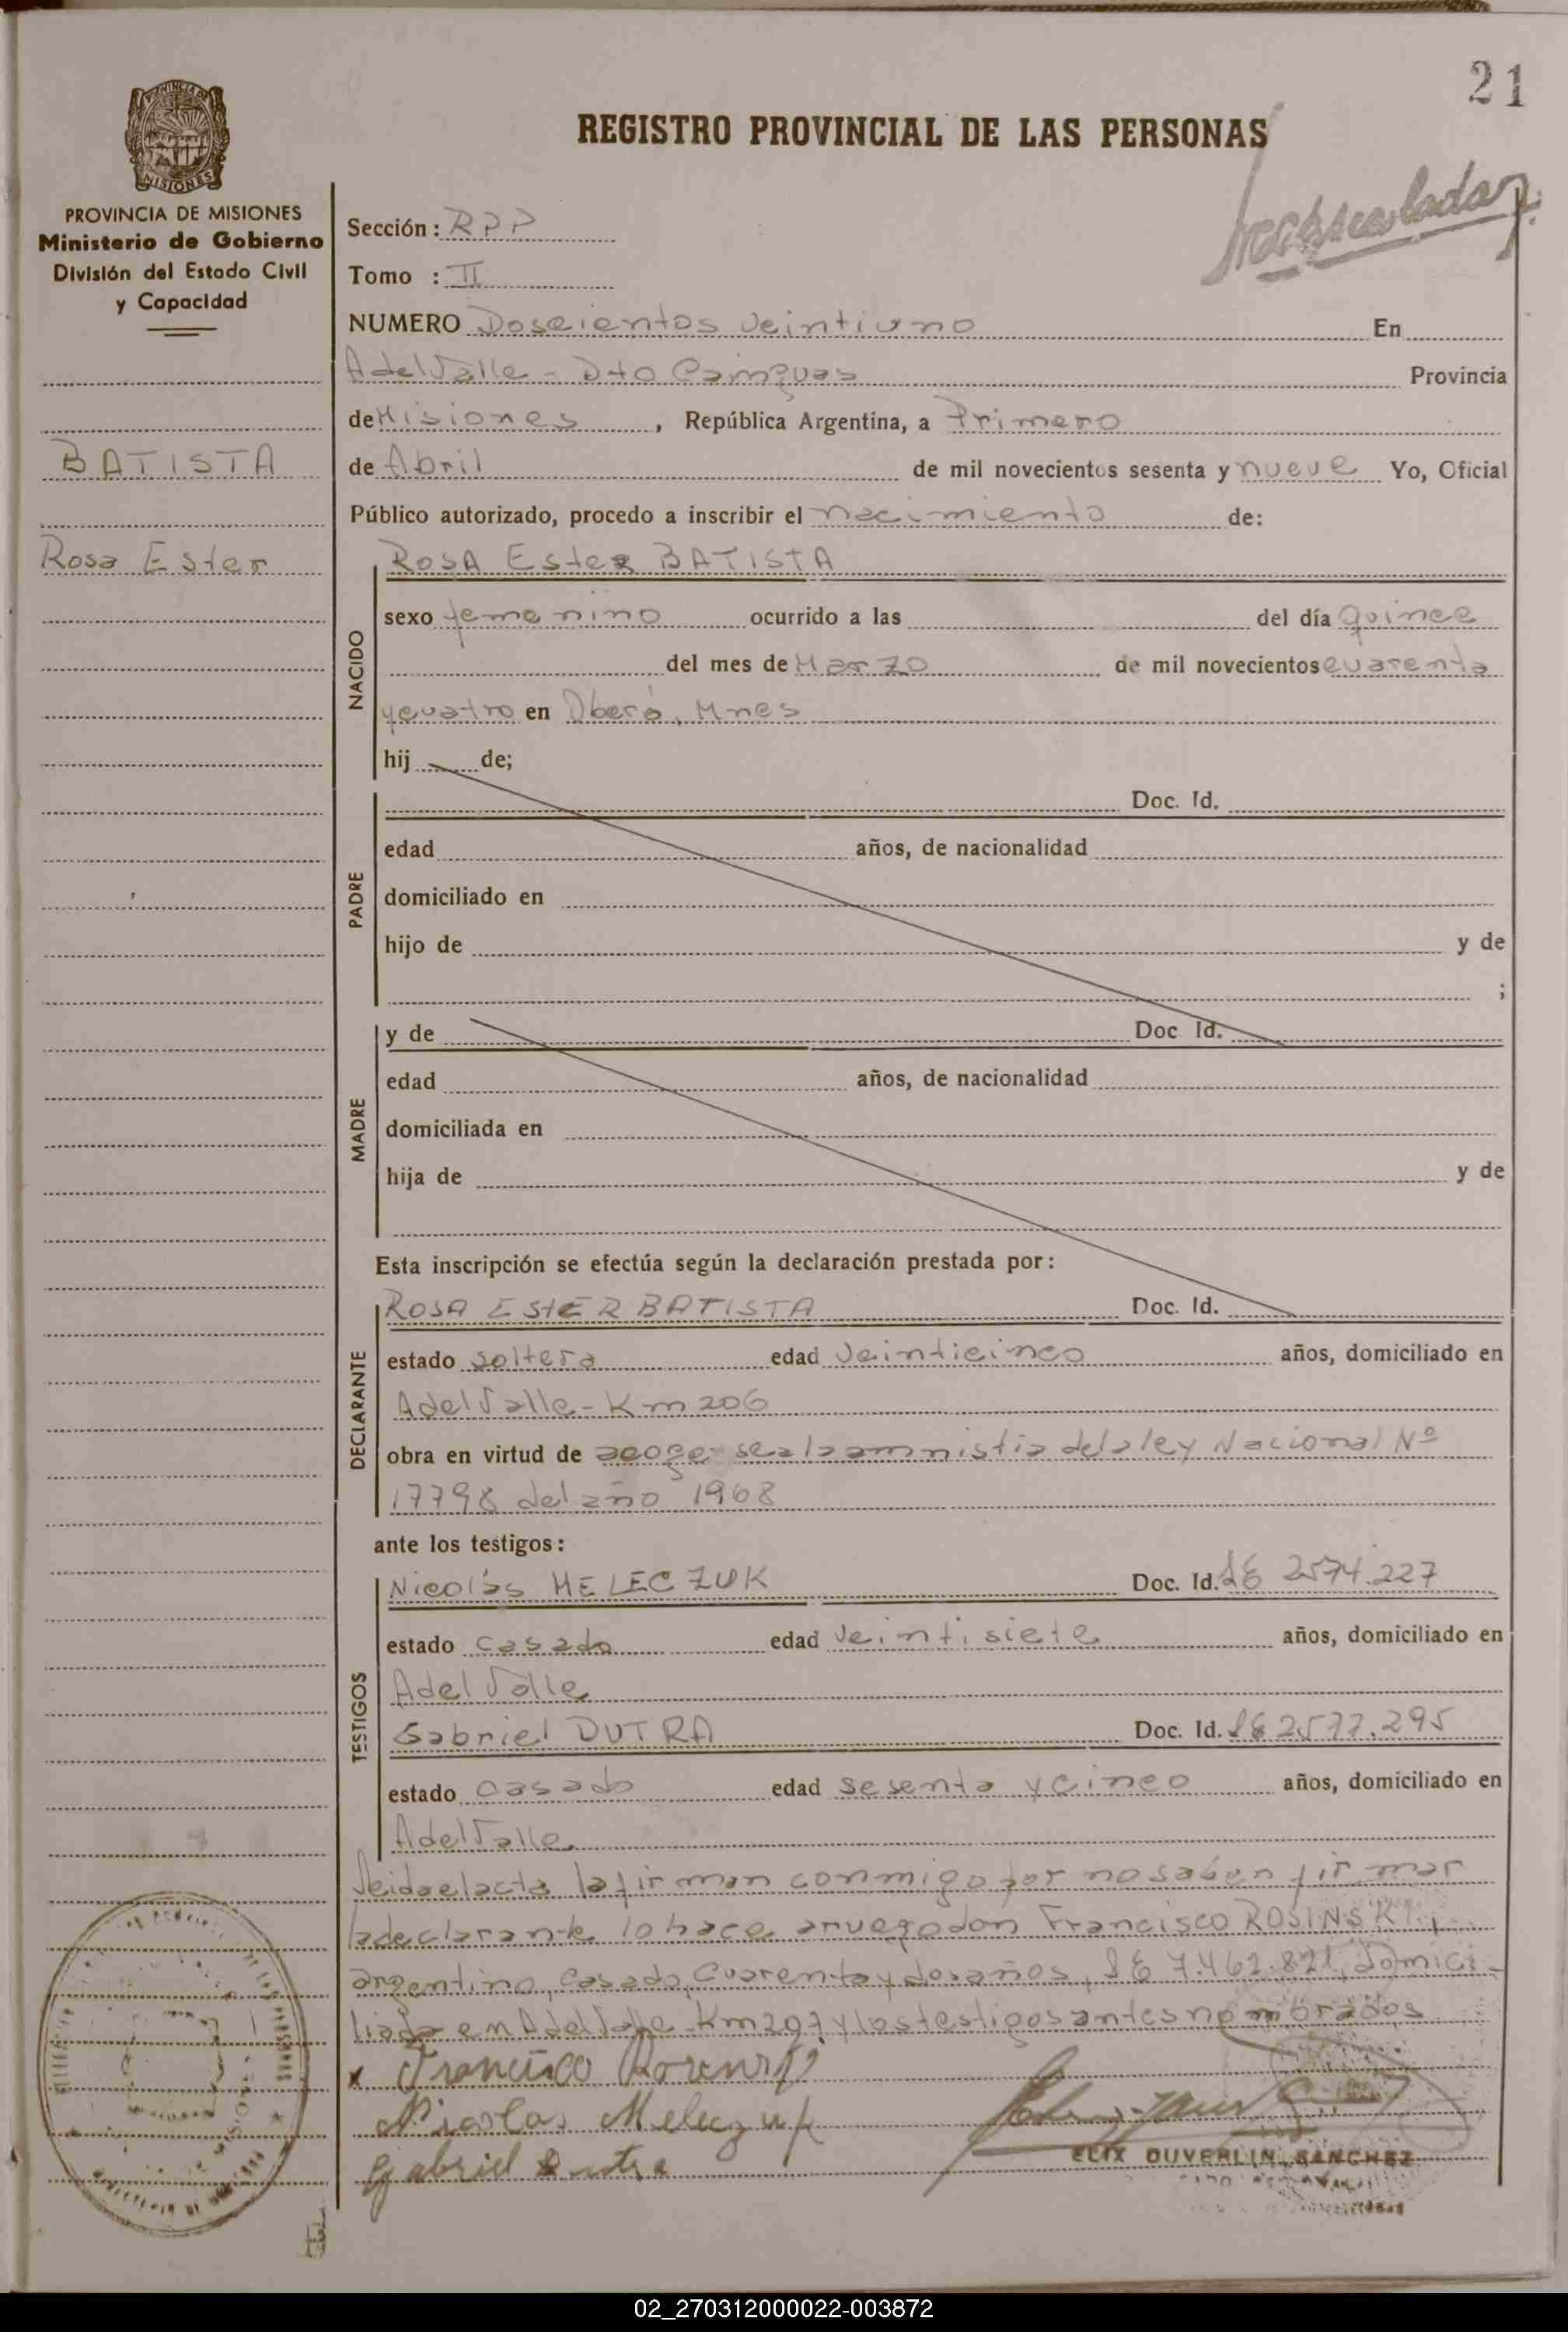 21
REGISTRO PROVINCIAL DE LAS PERSONAS
PROVINCIA DE MISIONES
Ministerio de Gobierno
División del Estado Civil
y Capacidad
BATISTA
Rosa Ester
Sección: RPP
Tomo : II
NUMERO Doscientos veintiuno En
A del Valle - Dto Cainguas Provincia
de Misiones, República Argentina, a Primero
de Abril de mil novecientos sesenta y nueve Yo, Oficial
Público autorizado, procedo a inscribir el nacimiento de:
NACIDO
ROSA Ester BATISTA
sexo femenino ocurrido a las del día quince
del mes de Marzo de mil novecientos cuarenta
y cuatro en Oberá, Mnes
hij de;
PADRE
Doc. Id.
edad años, de nacionalidad
domiciliado en
hijo de y de
;
MADRE
y de Doc Id.
edad años, de nacionalidad
domiciliada en
hija de y de
Esta inscripción se efectúa según la declaración prestada por:
DECLARANTE
ROSA ESTER BATISTA Doc. Id.
estado soltera edad veinticinco años, domiciliado en
A del Valle - Km 206
obra en virtud de acoger se a la amnistia de la ley Nacional Nº
17798 del año 1968
ante los testigos:
TESTIGOS
Nicolás MELECZUK Doc. Id. LE 2574.227
estado casado edad veintisiete años, domiciliado en
A del Valle
Gabriel DUTRA Doc. Id. LE 2577.295
estado casado edad sesenta y cinco años, domiciliado en
A del Valle
Leida el acta la firman conmigo por no saben firmar
la declarante lo hace a ruego don Francisco ROSINSKI,
argentino, casado, cuarenta y dos años, LE 7.462.821, domici-
liado en A del Valle Km 207 y los testigos antes nombrados
x Francisco
Nicolas Meleczuk
Gabriel Dutra
ELIX DUVERLIN SANCHEZ
02_270312000022-003872